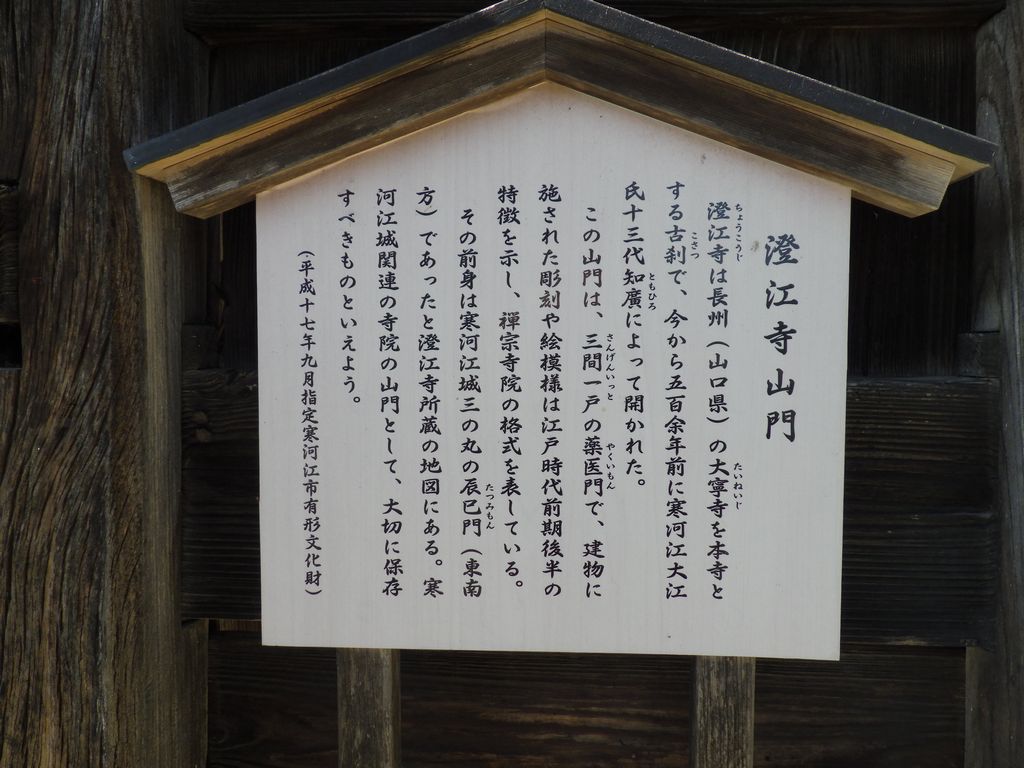 澄江寺山門
澄江寺は長州（山口県）の大寧寺を本寺と
ちょうこうじ
たいねいじ
する古刹で、今から五百余年前に寒河江大江
こさつ
氏十三代知廣によって開かれた。
ともひろ
この山門は、三間一戸の薬医門で、建物に
さんげんいっと
やくいもん
施された彫刻や絵模様は江戸時代前期後半の
特徴を示し、禅宗寺院の格式を表している。
その前身は寒河江城三の丸の辰巳門（東南
たつみもん
方）であったと澄江寺所蔵の地図にある。寒
河江城関連の寺院の山門として、大切に保存
すべきものといえよう。
（平成十七年九月指定寒河江市有形文化財）